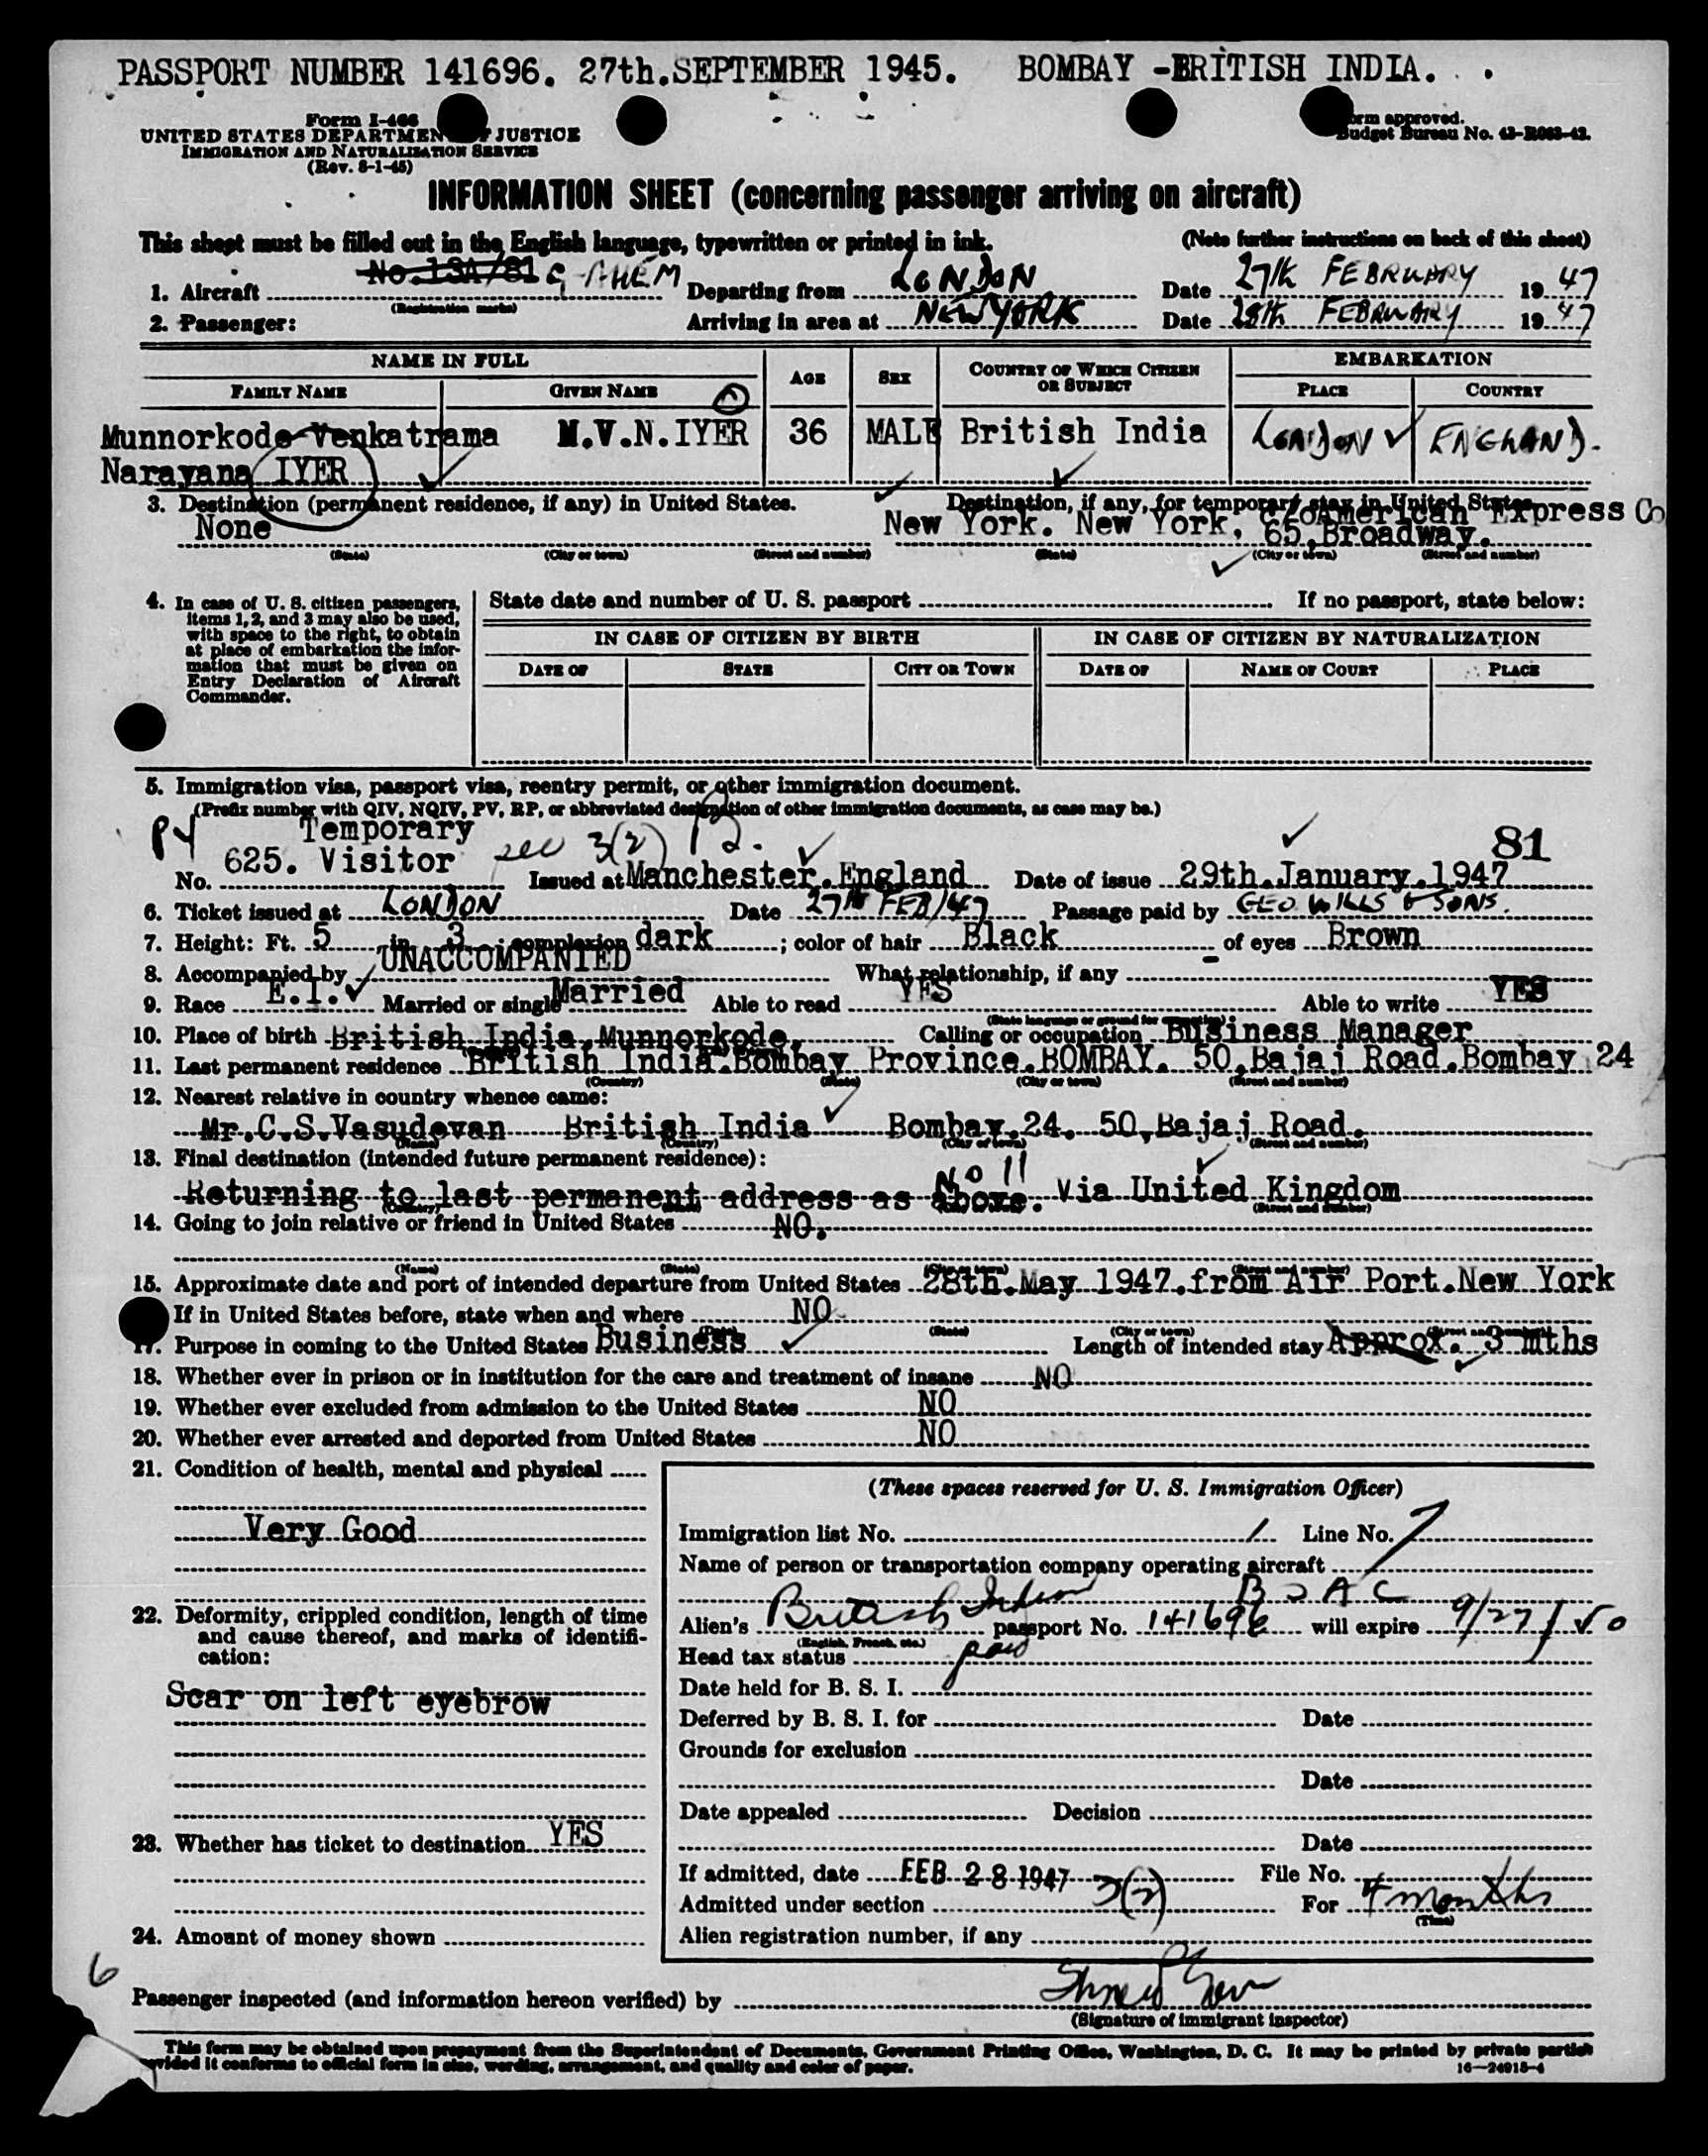 PASSPORT NUMBER 141696. 27th.SEPTEMBER 1945. BOMBAY -BRITISH INDIA.
Form I-466
UNITED STATES DEPARTMENT JUSTICE
IMMIGRATION AND NATURALIZATION SERVICE
(Rev. 8-1-45)
orm approved.
Budget Bureau No. 43-R083-42.
INFORMATION SHEET (concerning passenger arriving on aircraft)
This sheet must be filled out in the English language, typewritten or printed in ink. (Note further instructions on back of this sheet)
1. Aircraft No.13A/81 G-AHEM Departing from LONDON Date 27th FEBRUARY 1947
(Registration marks)
2. Passenger: Arriving in area at NEW YORK Date 28th FEBRUARY 1947
NAME IN FULL AGE SEX COUNTRY OF WHICH CITIZEN OR SUBJECT EMBARKATION
FAMILY NAME GIVEN NAME PLACE COUNTRY
Munnorkode Venkatrama M.V.N.IYER 36 MALE British India LONDON ENGLAND.
Narayana IYER
3. Destination (permanent residence, if any) in United States. Destination, if any, for temporary stay in United States
None New York. New York, C/o American Express Co
65,Broadway.
(State) (City or town) (Street and number) (State) (City or town) (Street and number)
4. In case of U. S. citizen passengers, items 1, 2, and 3 may also be used, with space to the right, to obtain at place of embarkation the information that must be given on Entry Declaration of Aircraft Commander.
State date and number of U. S. passport If no passport, state below:
IN CASE OF CITIZEN BY BIRTH IN CASE OF CITIZEN BY NATURALIZATION
DATE OF STATE CITY OR TOWN DATE OF NAME OF COURT PLACE
5. Immigration visa, passport visa, reentry permit, or other immigration document.
(Prefix number with QIV, NQIV, PV, RP, or abbreviated designation of other immigration documents, as case may be.)
PV Temporary sec 3(2) 81
No. 625. Visitor Issued at Manchester.England Date of issue 29th.January.1947
6. Ticket issued at LONDON Date 27th FEB/47 Passage paid by GEO WILLS & SONS.
7. Height: Ft. 5 in 3 ; complexion dark ; color of hair Black of eyes Brown
8. Accompanied by UNACCOMPANIED What relationship, if any
9. Race E.I. Married or single Married Able to read YES Able to write YES
10. Place of birth British India,Munnorkode, Calling or occupation Business Manager
11. Last permanent residence British India.Bombay Province.BOMBAY. 50,Bajaj Road.Bombay 24
(Country) (State) (City or town) (Street and number)
12. Nearest relative in country whence came:
Mr.C.S.Vasudevan British India Bombay.24. 50,Bajaj Road.
(Name) (Country) (City or town) (Street and number)
13. Final destination (intended future permanent residence):
No 11
Returning to last permanent address as above. Via United Kingdom
(Country) (Street and number)
14. Going to join relative or friend in United States NO.
(Name) (State) (City or town) (Street and number)
15. Approximate date and port of intended departure from United States 28th.May 1947.from Air Port.New York
If in United States before, state when and where NO
(Date) (State) (City or town) (Street and number)
17. Purpose in coming to the United States Business Length of intended stay Approx. 3 mths
18. Whether ever in prison or in institution for the care and treatment of insane NO
19. Whether ever excluded from admission to the United States NO
20. Whether ever arrested and deported from United States NO
21. Condition of health, mental and physical
Very Good
22. Deformity, crippled condition, length of time and cause thereof, and marks of identification:
Scar on left eyebrow
23. Whether has ticket to destination YES
24. Amount of money shown
(These spaces reserved for U. S. Immigration Officer)
Immigration list No. 1 Line No. 7
Name of person or transportation company operating aircraft
B O A C
Alien's British Indian passport No. 141696 will expire 9/27/50
(English, French, etc.)
Head tax status paid
Date held for B. S. I.
Deferred by B. S. I. for Date
Grounds for exclusion
Date
Date appealed Decision
Date
If admitted, date FEB 28 1947 File No.
Admitted under section 3(2) For 4 months
(Time)
Alien registration number, if any
6
Passenger inspected (and information hereon verified) by
(Signature of immigrant inspector)
This form may be obtained upon prepayment from the Superintendent of Documents, Government Printing Office, Washington, D. C. It may be printed by private parties
provided it conforms to official form in size, wording, arrangement, and quality and color of paper. 16—24918-4